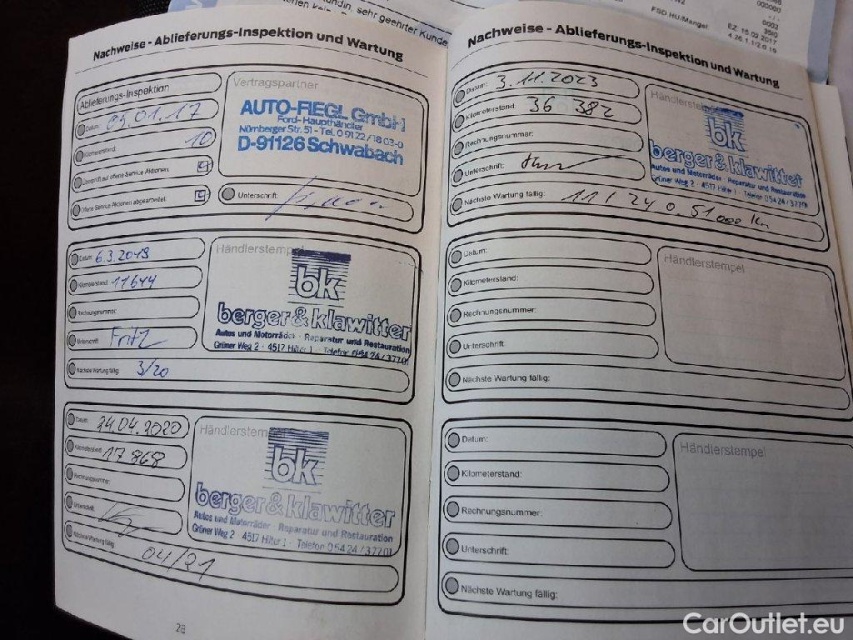 sehr geehrter Kunde
FSD HU/Mängel
Nachweise - Ablieferungs-Inspektion und Wartung
Ablieferungs-Inspektion
Datum: 05.01.17
Kilometerstand: 10
Offene Service Aktionen abgearbeitet:
Unterschrift:
Vertragspartner
AUTO-FIEGL GmbH
Ford-Haupthändler
Nürnberger Str. 51 - Tel. 0 91 22 / 18 03-0
D-91126 Schwabach
Datum: 6.3.2019
Kilometerstand: 11644
Rechnungsnummer:
Unterschrift: Fritz
Nächste Wartung fällig: 3/20
Händlerstempel
bk
berger & klawitter
Autos und Motorräder - Reparatur und Restauration
Grüner Weg 2 - 4517 Hilter 1 - Telefon 05424/37701
Datum: 24.04.2020
Kilometerstand: 17868
Rechnungsnummer:
Unterschrift:
Nächste Wartung fällig: 04/21
Händlerstempel
bk
berger & klawitter
Autos und Motorräder - Reparatur und Restauration
Grüner Weg 2 - 4517 Hilter 1 - Telefon 05424/37701
28
Nachweise - Ablieferungs-Inspektion und Wartung
Datum: 3.11.2023
Kilometerstand: 36 382
Rechnungsnummer:
Unterschrift:
Nächste Wartung fällig: 11/24 o. 51000 km
Händlerstempel
bk
berger & klawitter
Autos und Motorräder - Reparatur und Restauration
Grüner Weg 2 - 4517 Hilter 1 - Telefon 05424/37701
Datum:
Kilometerstand:
Rechnungsnummer:
Unterschrift:
Nächste Wartung fällig:
Händlerstempel
Datum:
Kilometerstand:
Rechnungsnummer:
Unterschrift:
Nächste Wartung fällig:
Händlerstempel
CarOutlet.eu